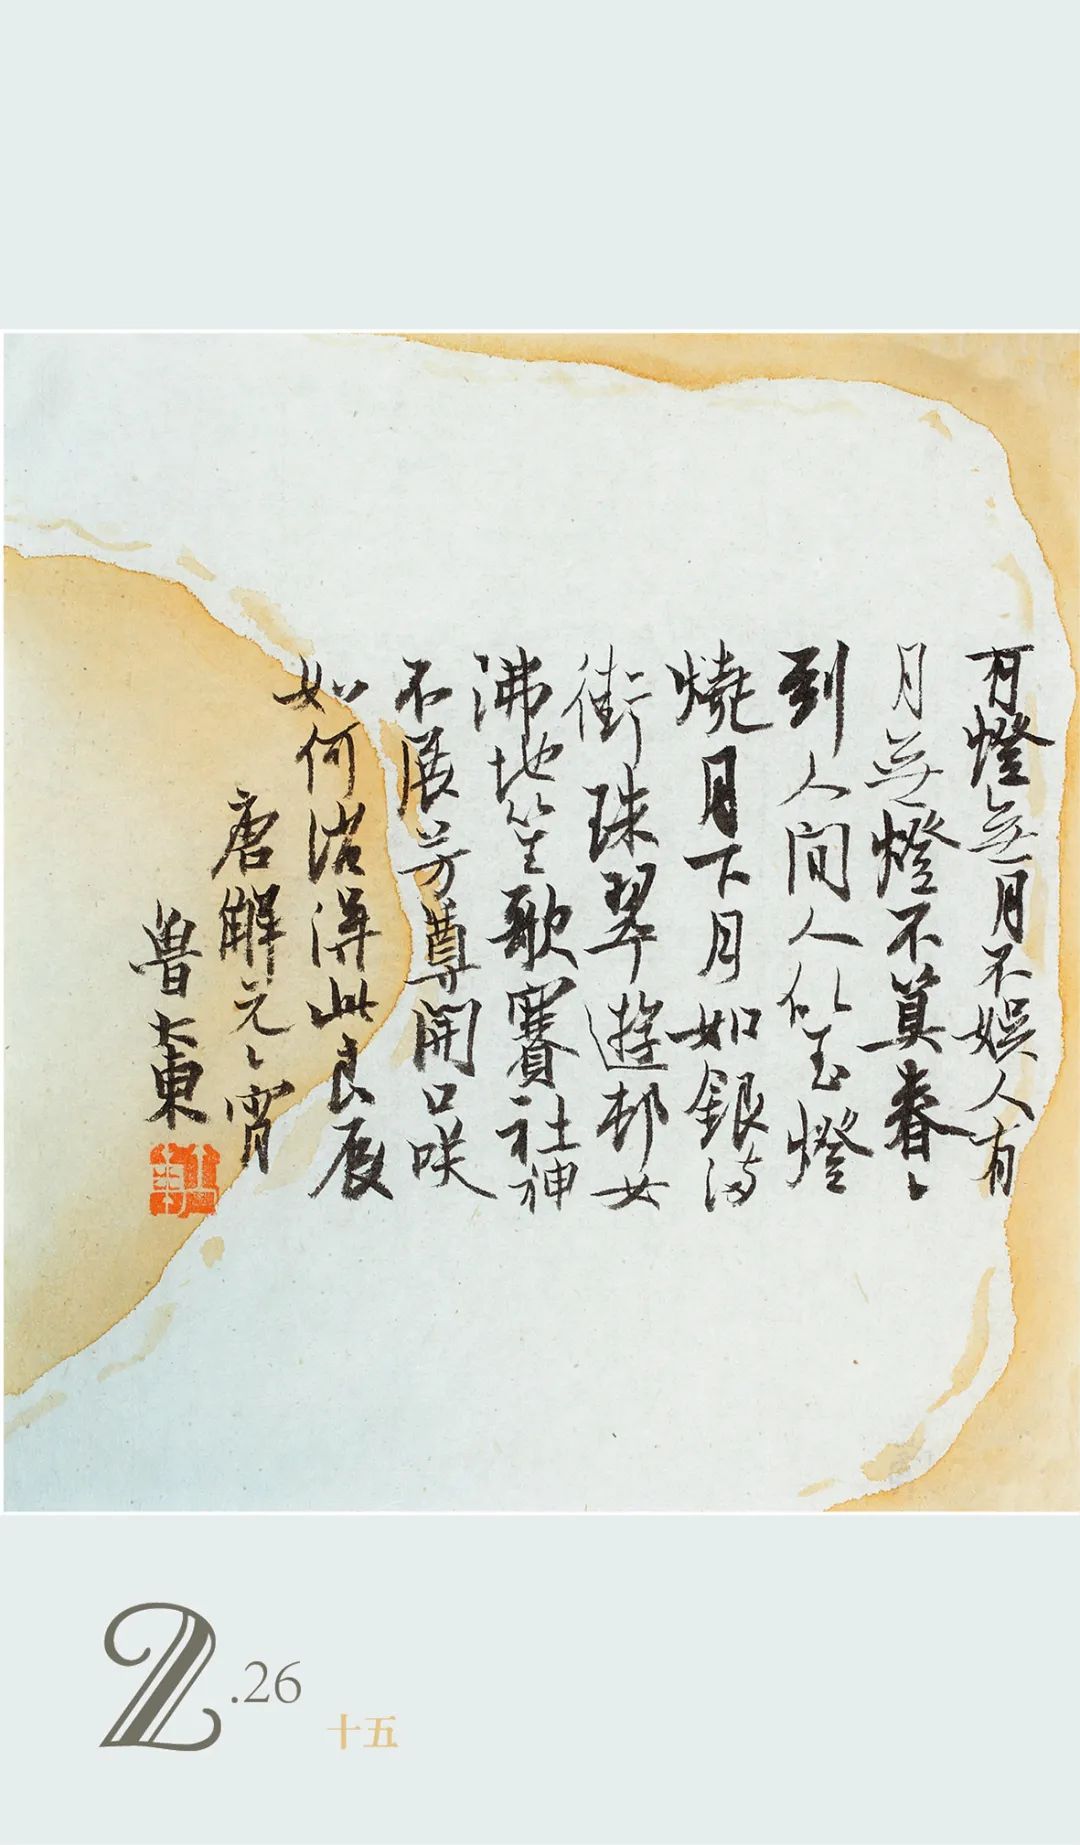 有燈無月不娛人有
月無燈不算春〻
到人間人似玉燈
燒月下月如銀滿
街珠翠遊邨女
沸地笙歌賽社神
不展芳尊開口咲
如何消得此良辰
唐解元〻宵
魯大東
2.26
十五